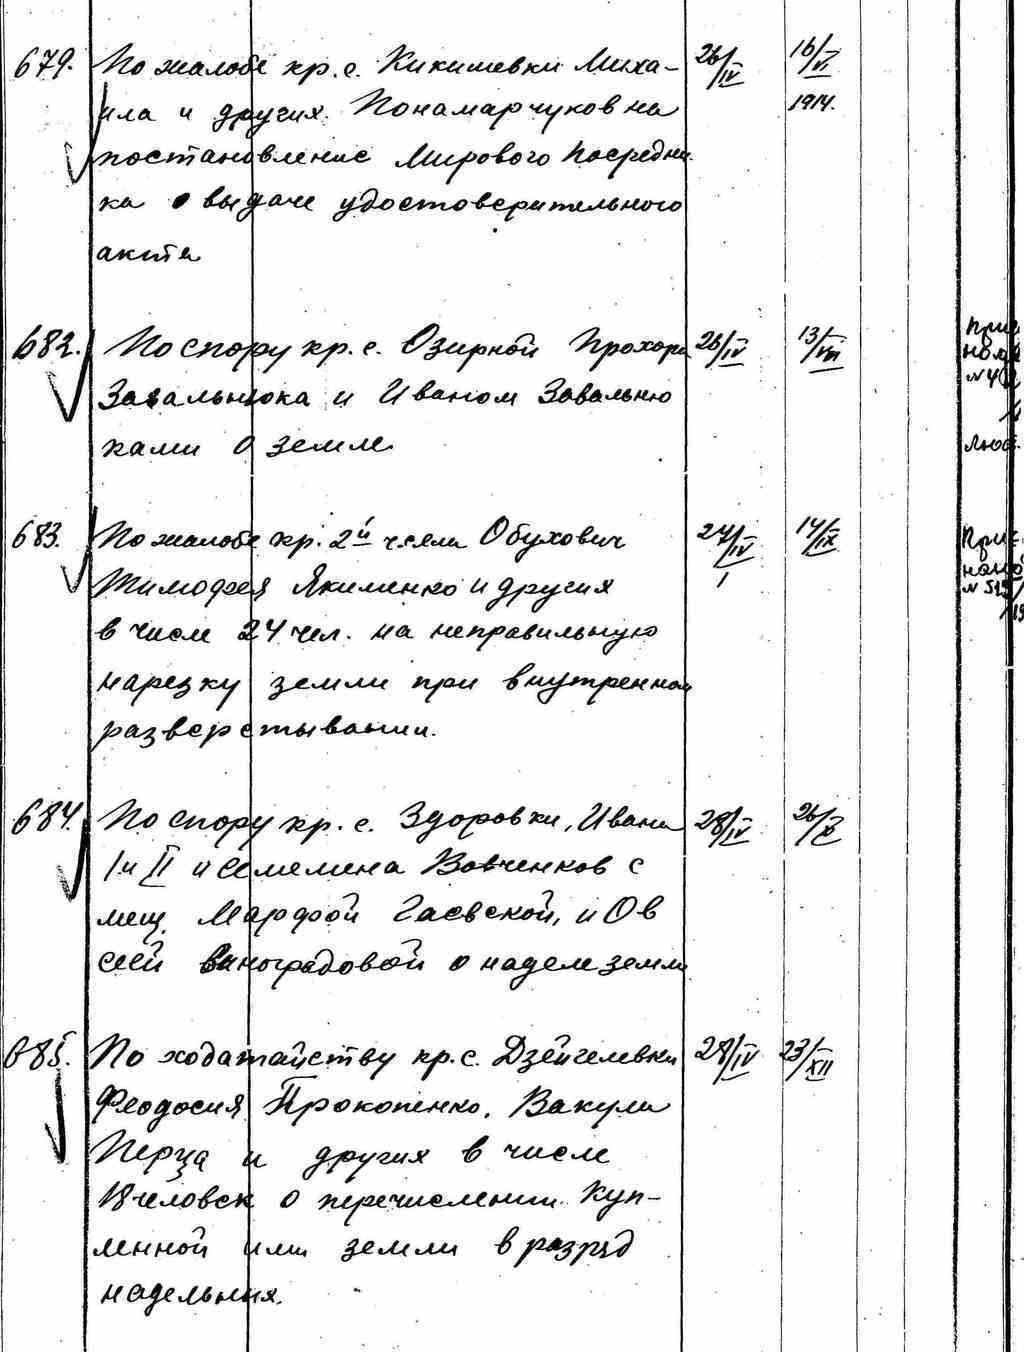 679. По жалобе кр. с. Кикишевки Миха- 26/IV 16/VI
ила и других Понамарчуков на 1914.
постановление Мирового Посредни
ка о выдаче удостоверительного
акта
682. По спору кр. с. Озирной Прохора 26/IV 13/VIII
Завальнюка и Иваном Завальню
ками о земле
683. По жалобе кр. 2й части Обухович 27/IV 14/IX
Тимофея Якименко и других
в числе 24 чел. на неправильную
нарезку земли при внутреннем
разверстывании.
684. По спору кр. с. Здоровки, Ивана 28/IV 26/X
I и II и Семемена Вовченков с
мещ. Марфой Гаевской, и Ов
сей Виноградовой о наделе земли
685. По ходатайству кр. с. Дзенгелевки 28/IV 23/XII
Феодосия Прокопенко, Вакули
Перца и других в числе
18 человек о перечислении Куп-
ленной ими земли в разряд
надельных.